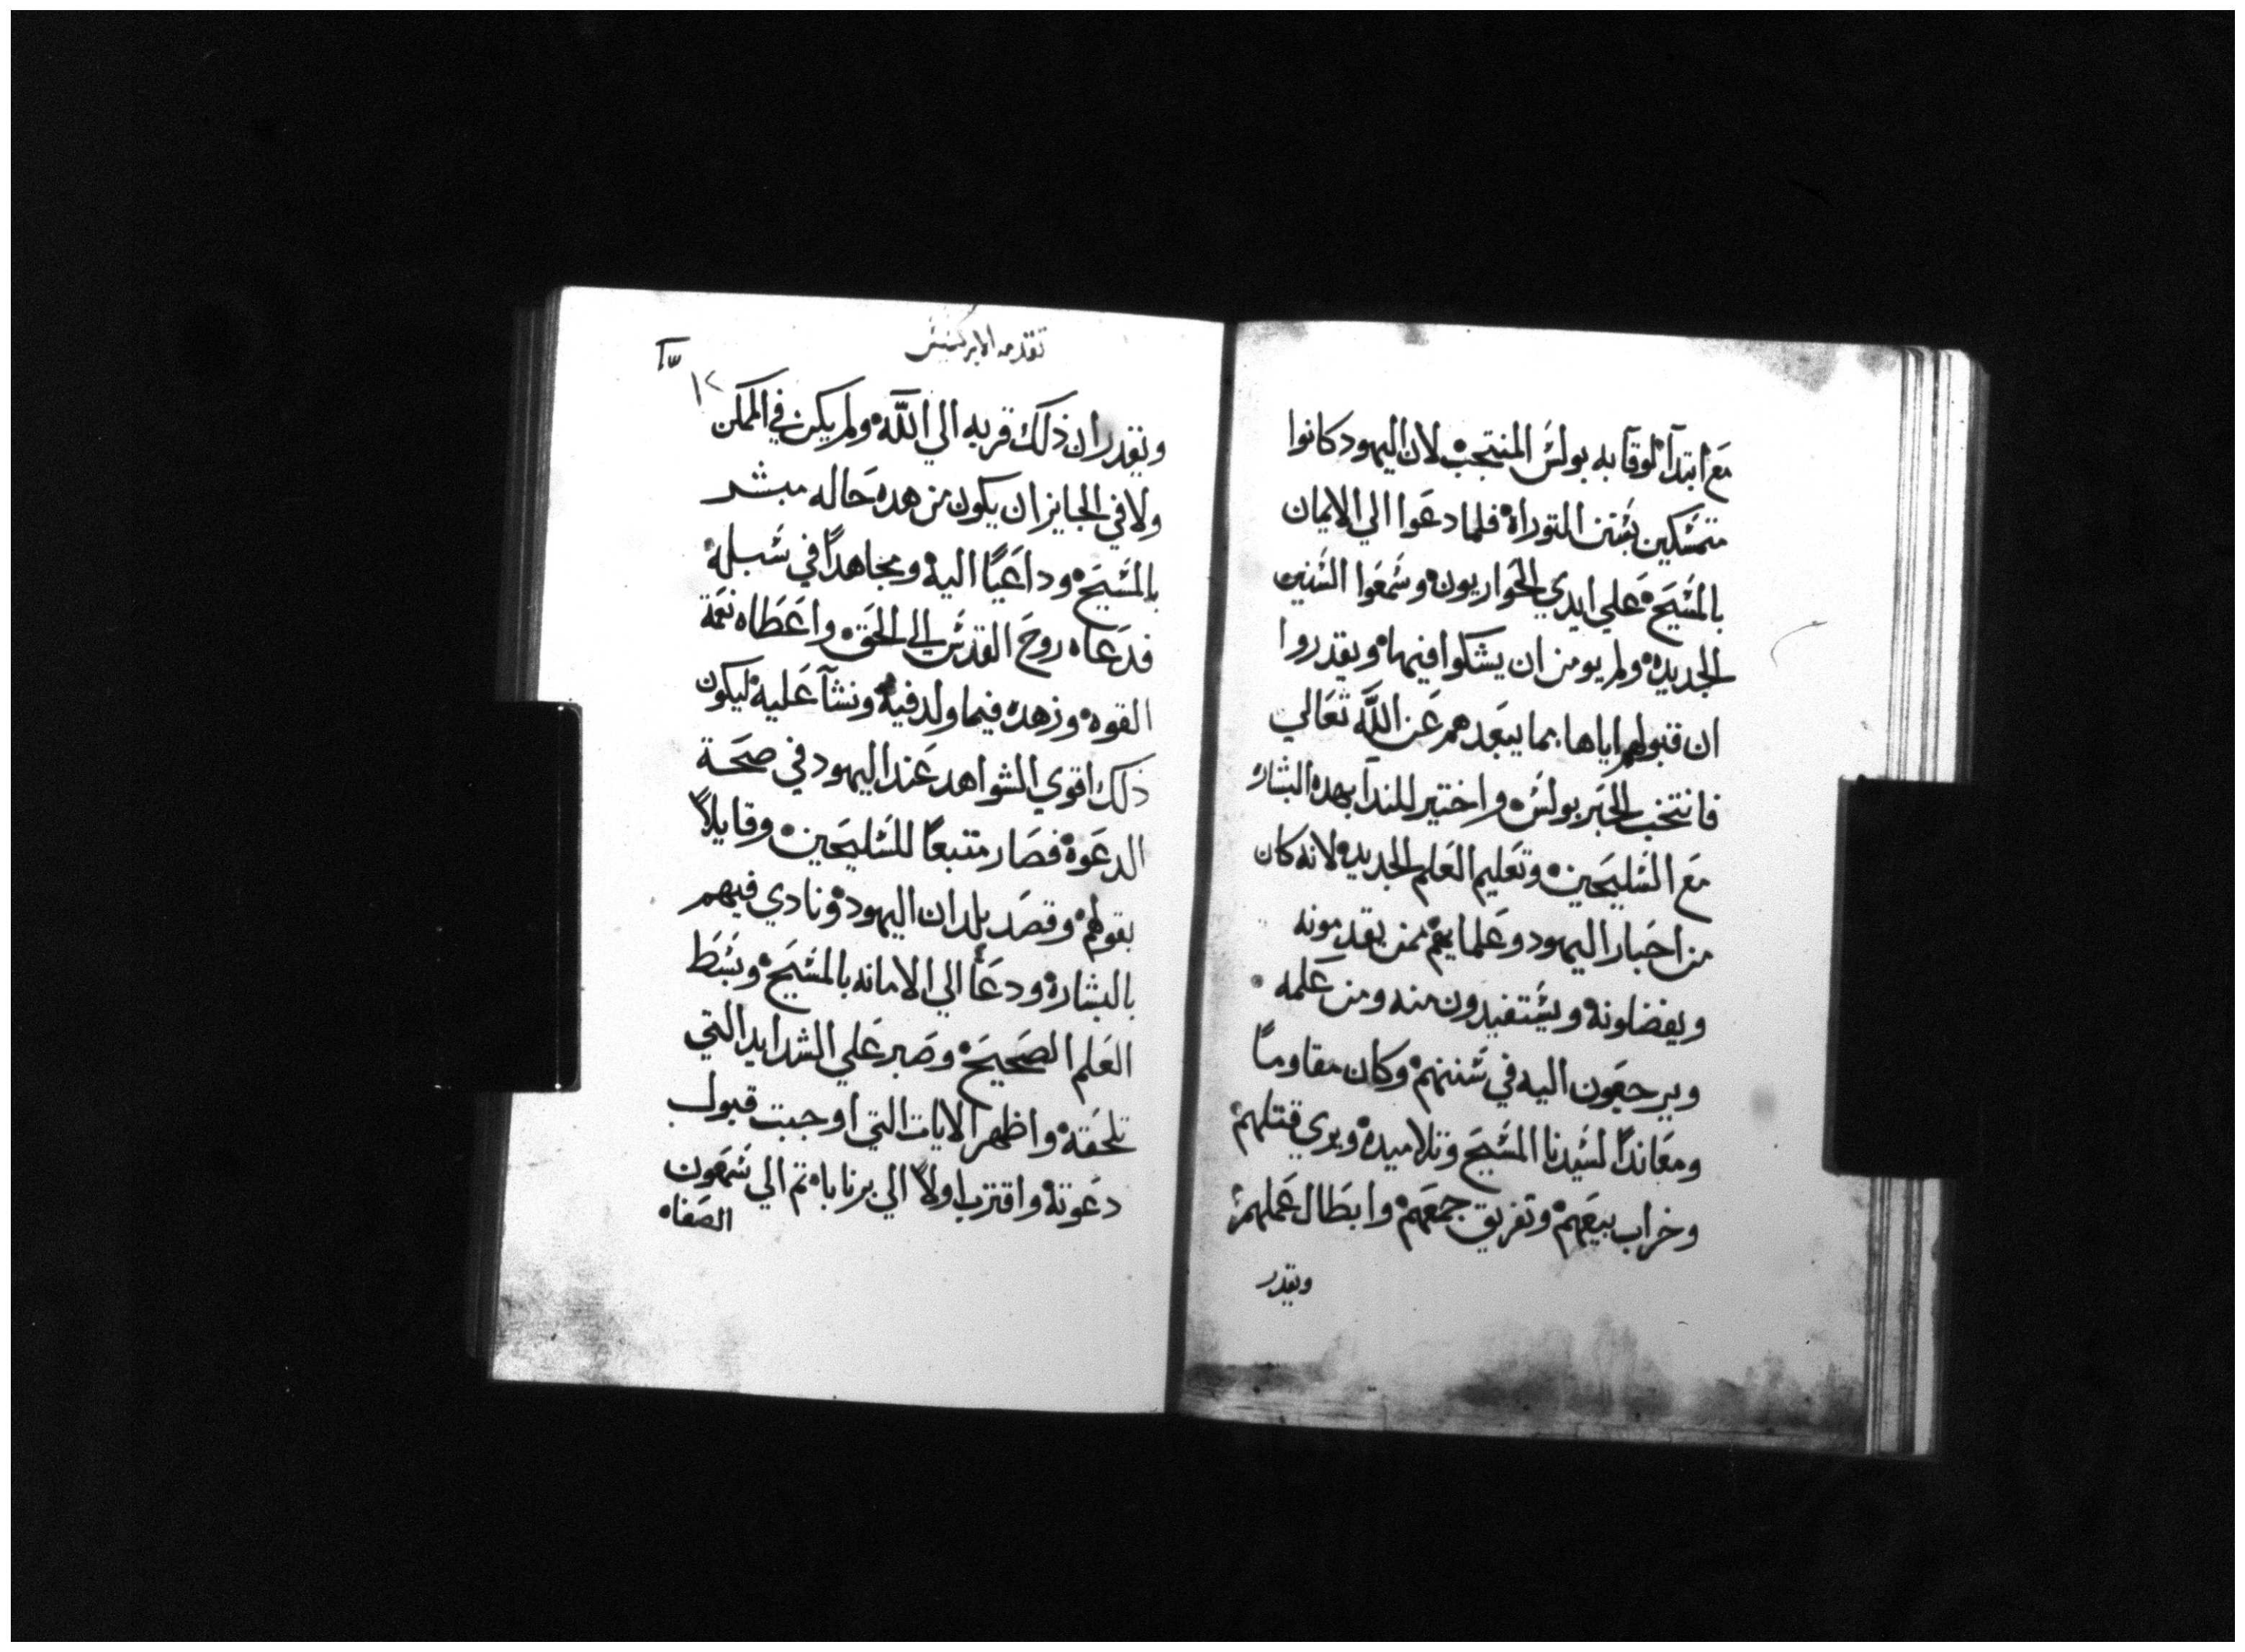 مع ابتدآ لوقا به بولس المنتجب لان اليهود كانوا
متمسكين بسنن التوراة فلما دعوا الي الايمان
بالمسيح علي ايدي الحواريون وسمعوا السنن
الجديده ولم يومن ان يشكوا فيها ويقدروا
ان قبولهم اياها بما يبعدهم عن الله تعالي
فانتخب الحبر بولس واختير للندآ بهده البشاره
مع السليحين وتعليم العلم الجديده لانه كان
من احبار اليهود وعلمايهم ممن يقدمونه
ويفضلونه ويستفيدون منه ومن علمه
ويرجعون اليه في سننهم وكان مقاوماً
ومعانداً لسيدنا المسيح وتلاميده ويري قتلهم
وخراب بيعهم وتفريق جمعهم وابطال عملهم
ويقدر
تقدمه الابركسيس
١٢
ويقدر ان ذلك قربه الي الله ولم يكن في الممكن
ولا في الجايز ان يكون من هده حاله مبشر
بالمسيح وداعياً اليه ومجاهداً في سبله
فدعاه روح القدس الي الحق واعطاه نعمة
القوه وزهده فيما ولد فيه ونشآ عليه ليكون
ذلك اقوي الشواهد عند اليهود في صحة
الدعوة فصار متبعاً للسليحين وقايلاً
بقولهم وقصد بلدان اليهود ونادي فيهم
بالبشارة ودعآ الي الامانه بالمسيح وبسط
العلم الصحيح وصبر علي الشدايد التي
تلحقة واظهر الايات التي اوجبت قبول
دعوتة واقترب اولاً الي برنابا تم الي سمعون
الصفاه